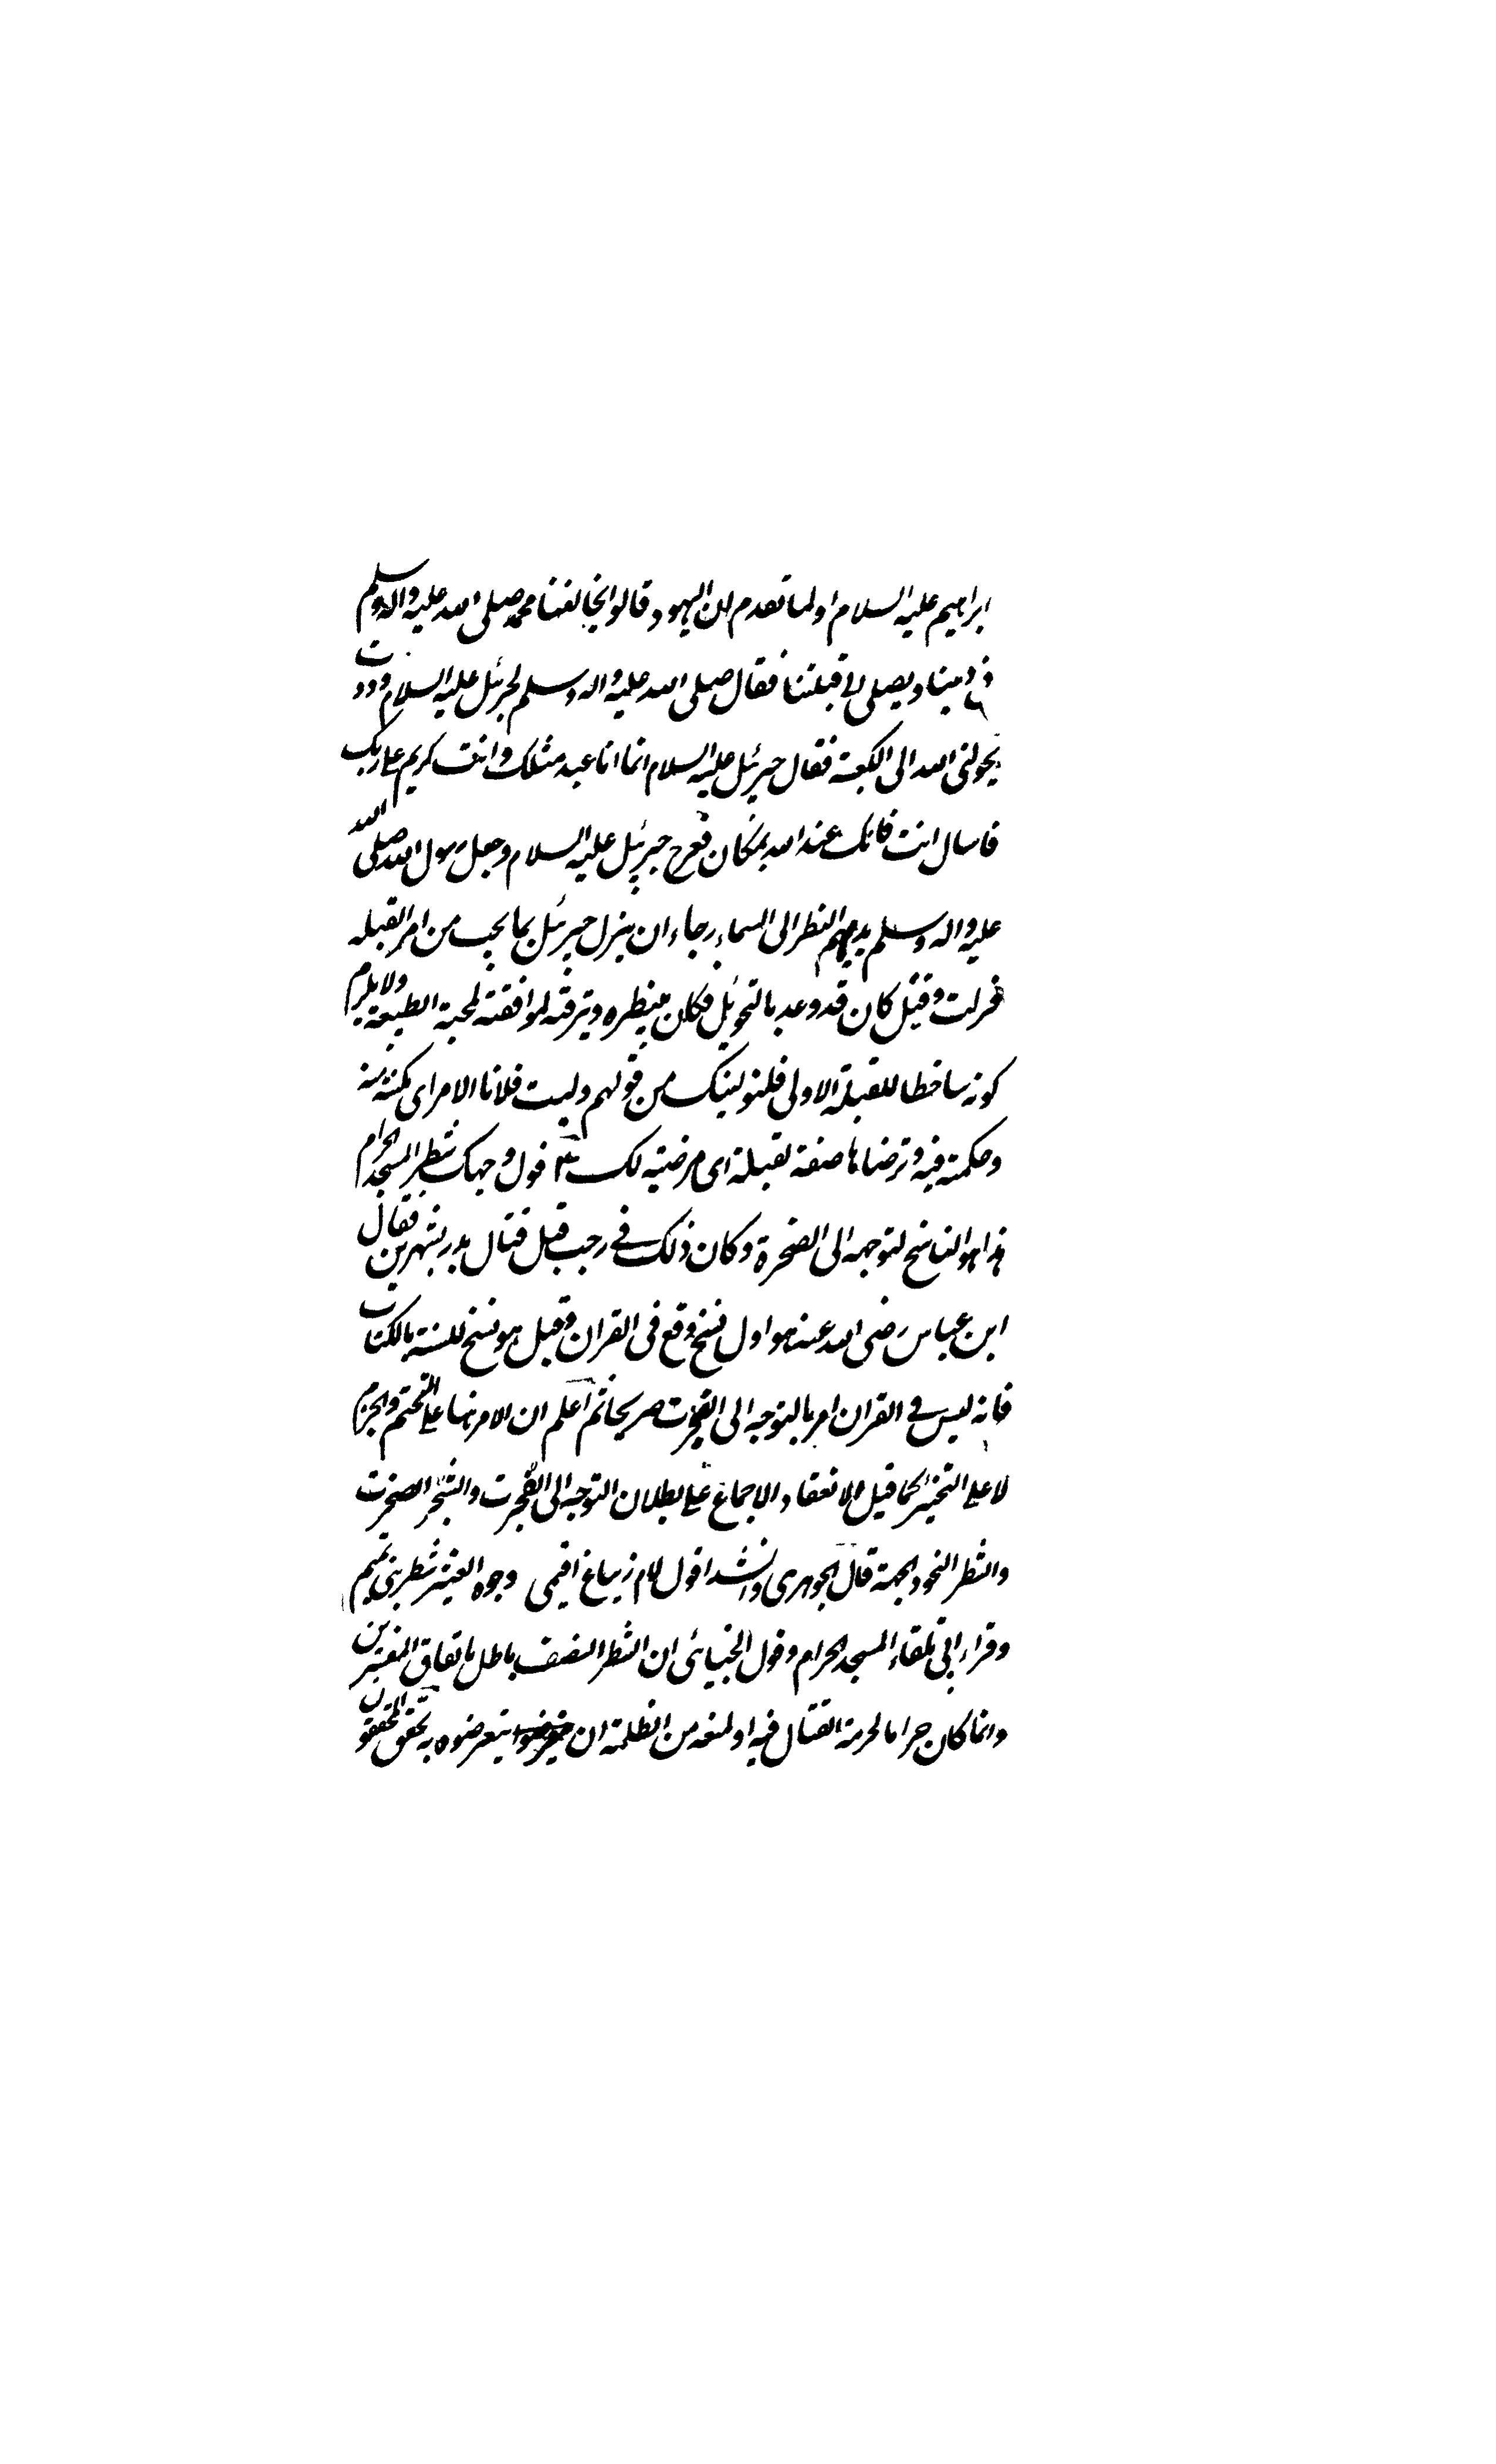 ابراهيم عليه السلام او لما تقدم ان اليهود قالوا يخالفنا محمد صلى الله عليه واله وسلم
في ديننا ويصلى الى قبلتنا فقال صلى الله عليه واله وسلم لجبرئيل عليه السلام وددت
يحولنى الله الى الكعبة فقال جبرئيل عليه السلام انما انا عبد مثلك وانت كريم على ربك
فاسال انت فانك عند الله بمكان فعرج جبرئيل عليه السلام وجعل رسول الله صلى الله
عليه واله وسلم يديم النظر الى السماء رجاء ان ينزل جبرئيل بما يحب من امر القبله
فنزلت وقيل كان قد وعد بالتحويل فكان ينتظره وترقبه لموافقته لمحبة الطبيعة ولا يلزم
كونه ساخطا للقبلة الاولى فلنولينك من قولهم وليت فلانا الامر اى مكنته منه
وحكمته فيه وترضاها صفة لقبلة اى مرضيه لك فول وجهك شطر المسجد الحرام
هذا هو الناسخ لتوجهه الى الصخرة وكان ذلك في رجب قبل قتال بدر بشهرين فقال
ابن عباس رضى الله عنه هو اول نسخ وقع فى القران وقيل هو نسخ للسنة بالكتاب
فانه ليس في القران امر بالتوجه الى الصخرت صريحا ثم اعلم ان الامر هنا على التحتم والجزم
لا على التخيير كما قيل لانعقاد الاجماع على بطلان التوجه الى الصخرت
والشطر النحو والجهة قال الجوهرى وانشد اقول لام زنباع اقيمى وجوه العيش شطر بنى تميم
وقراء ابى تلقاء المسجد الحرام وقول الجبائى ان الشطر النصف باطل باتفاق المفسرين
وانما كان حراما لحرمة القتال فيه او لمنعه من الظلمة ان يتعرضوه